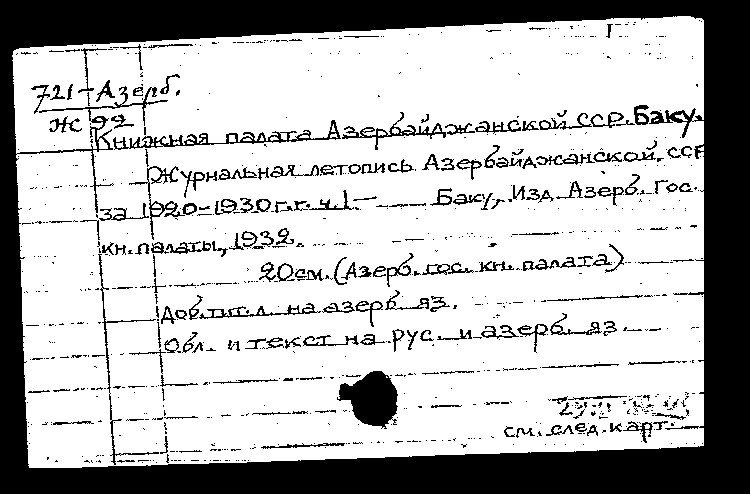 721-Азерб.
Ж 92
Книжная палата Азербайджанской ССР. Баку.
Журнальная летопись Азербайджанской ССР
за 1920-1930г.г. ч.1— Баку, Изд. Азерб. Гос.
кн. палаты, 1932.
20см. (Азерб. гос. кн. палата)
Доб. тит. л. на азерб. яз.
Обл. и текст на рус. и азерб. яз.
см. след. карт.